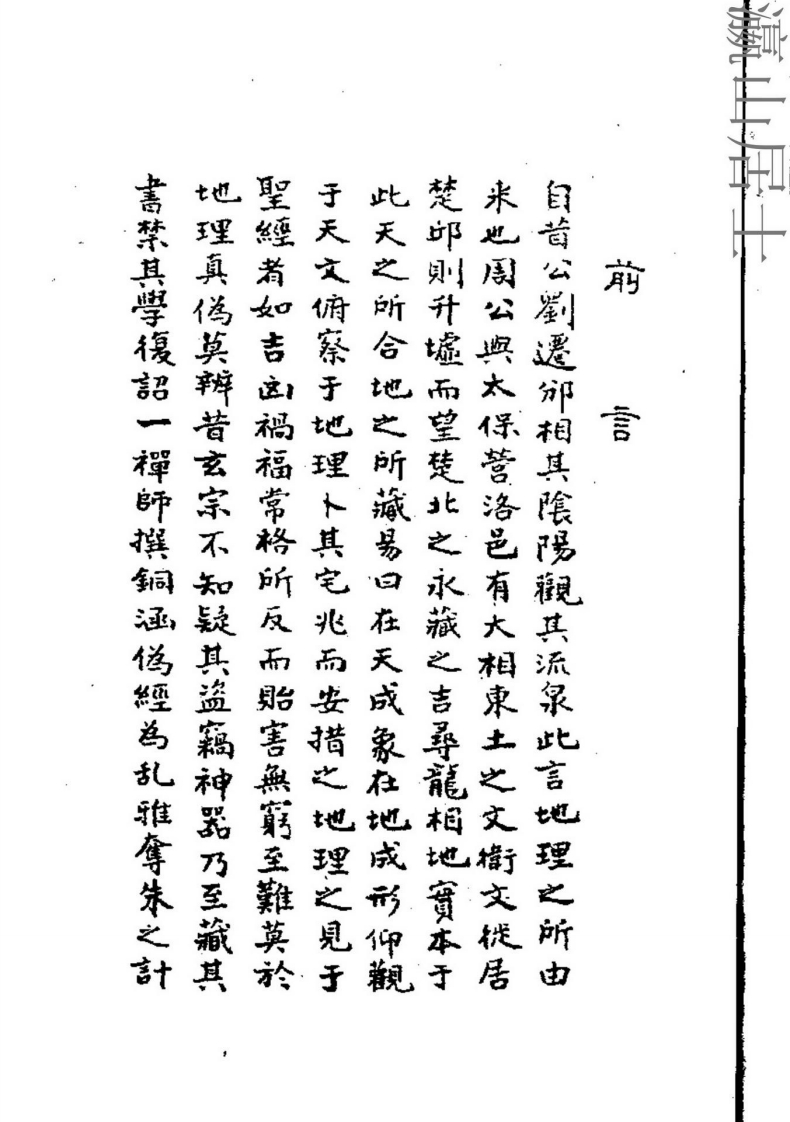 瀛山居士
前言
自昔公劉遷邠相其陰陽觀其流泉此言地理之所由
來也周公與太保營洛邑有大相東土之文衛文徙居
楚邱則升墟而望楚北之永藏之吉尋龍相地實本于
此天之所合地之所藏易曰在天成象在地成形仰觀
于天文俯察于地理卜其宅兆而安措之地理之見于
聖經者如吉凶禍福常格所反而貽害無窮至難莫於
地理真偽莫辨昔玄宗不知疑其盜竊神器乃至藏其
書禁其學復詔一禪師撰銅涵偽經為乱雅奪朱之計